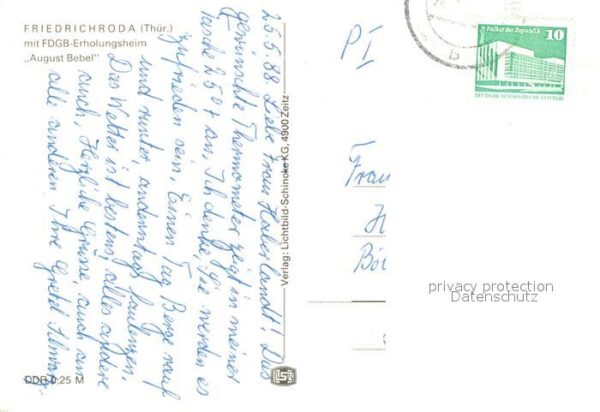 FRIEDRICHRODA (Thür.)
mit FDGB-Erholungsheim
„August Bebel"
25.5.88 Liebe Frau Haberlandt! Das
gewünschte Thermometer zeigt in meiner
Tasche 250+ an, Ich denke, Sie werden es
zufrieden sein. Einen Tag Berge rauf
und runter, anderntags faulenzen.
Das Wetter ist bestens, alles andere
auch, Herzliche Grüße, auch an
alle anderen. Ihre Gretel
DDR 0,25 M
Verlag: Lichtbild-Schincke KG, 4900 Zeitz
P I
Palast der Republik
10
DEUTSCHE DEMOKRATISCHE REPUBLIK
b
Frau
H
privacy protection
Datenschutz